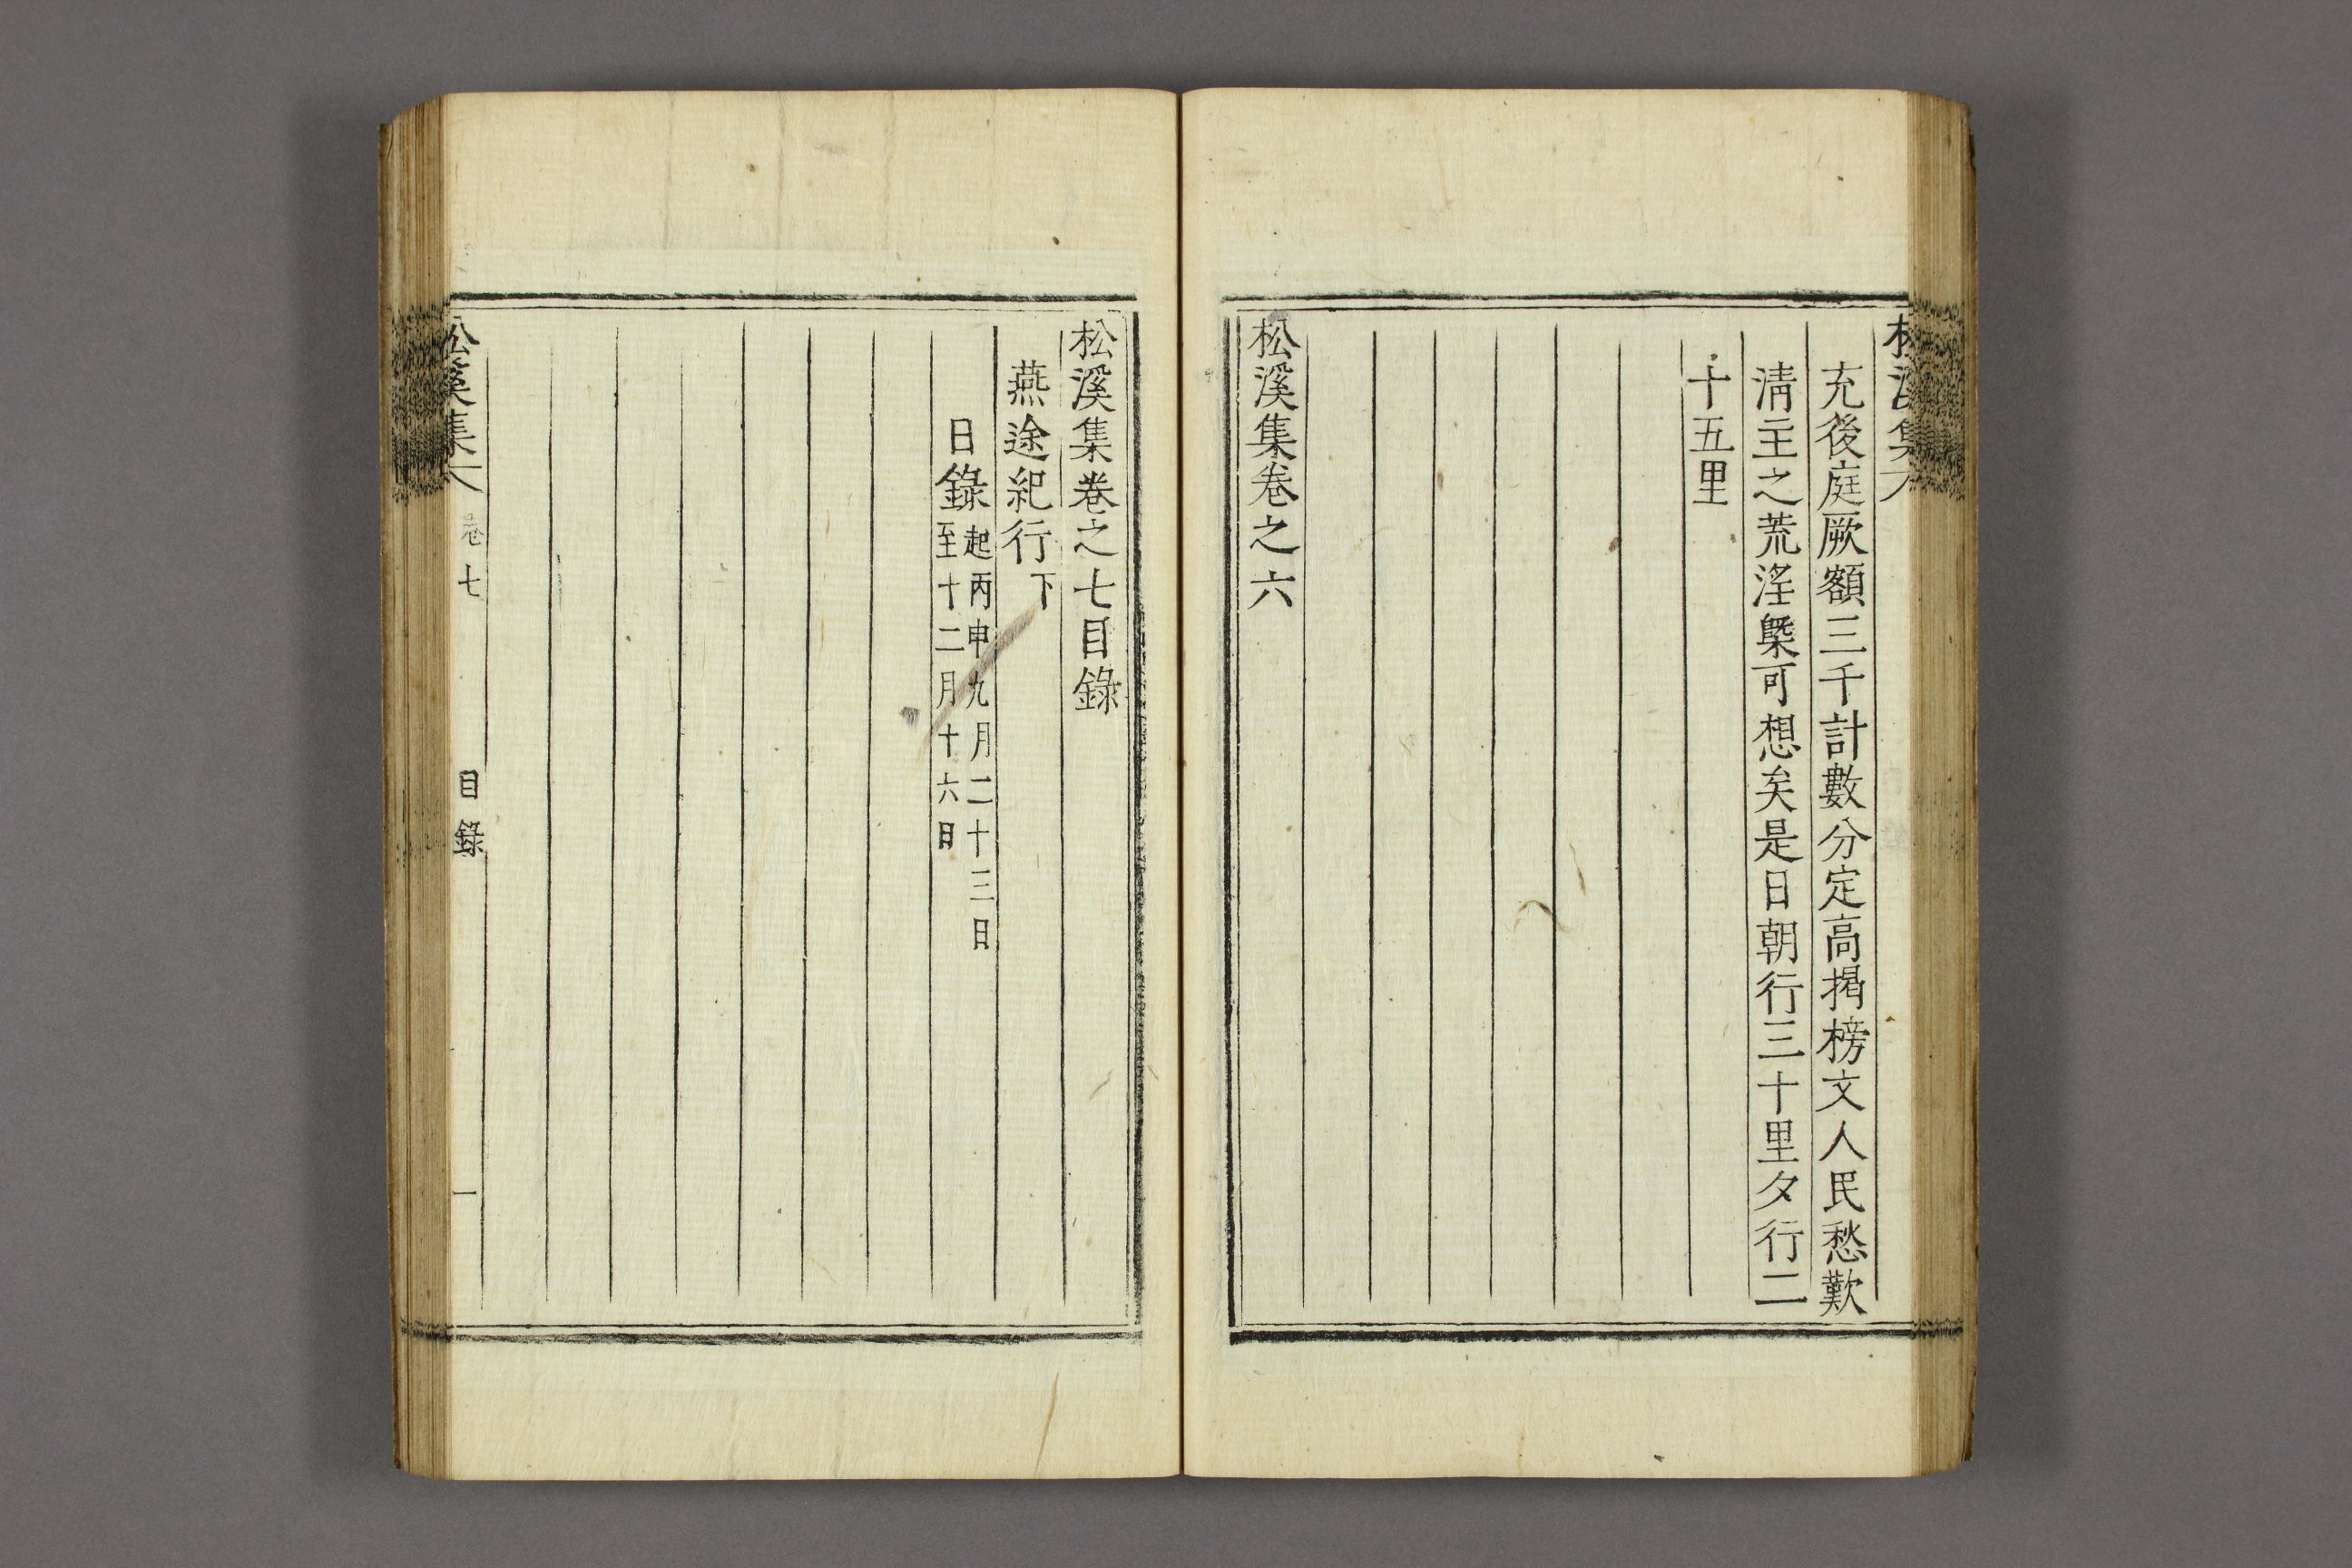 松溪集
充後庭厥額三千計數分定高揭榜文人民愁歎
淸主之荒淫槩可想矣是日朝行三十里夕行二
十五里
松溪集卷之六
松溪集卷之七目錄
燕途紀行下
日錄起丙申九月二十三日
至十二月十六日
松溪集 卷七 目錄 一